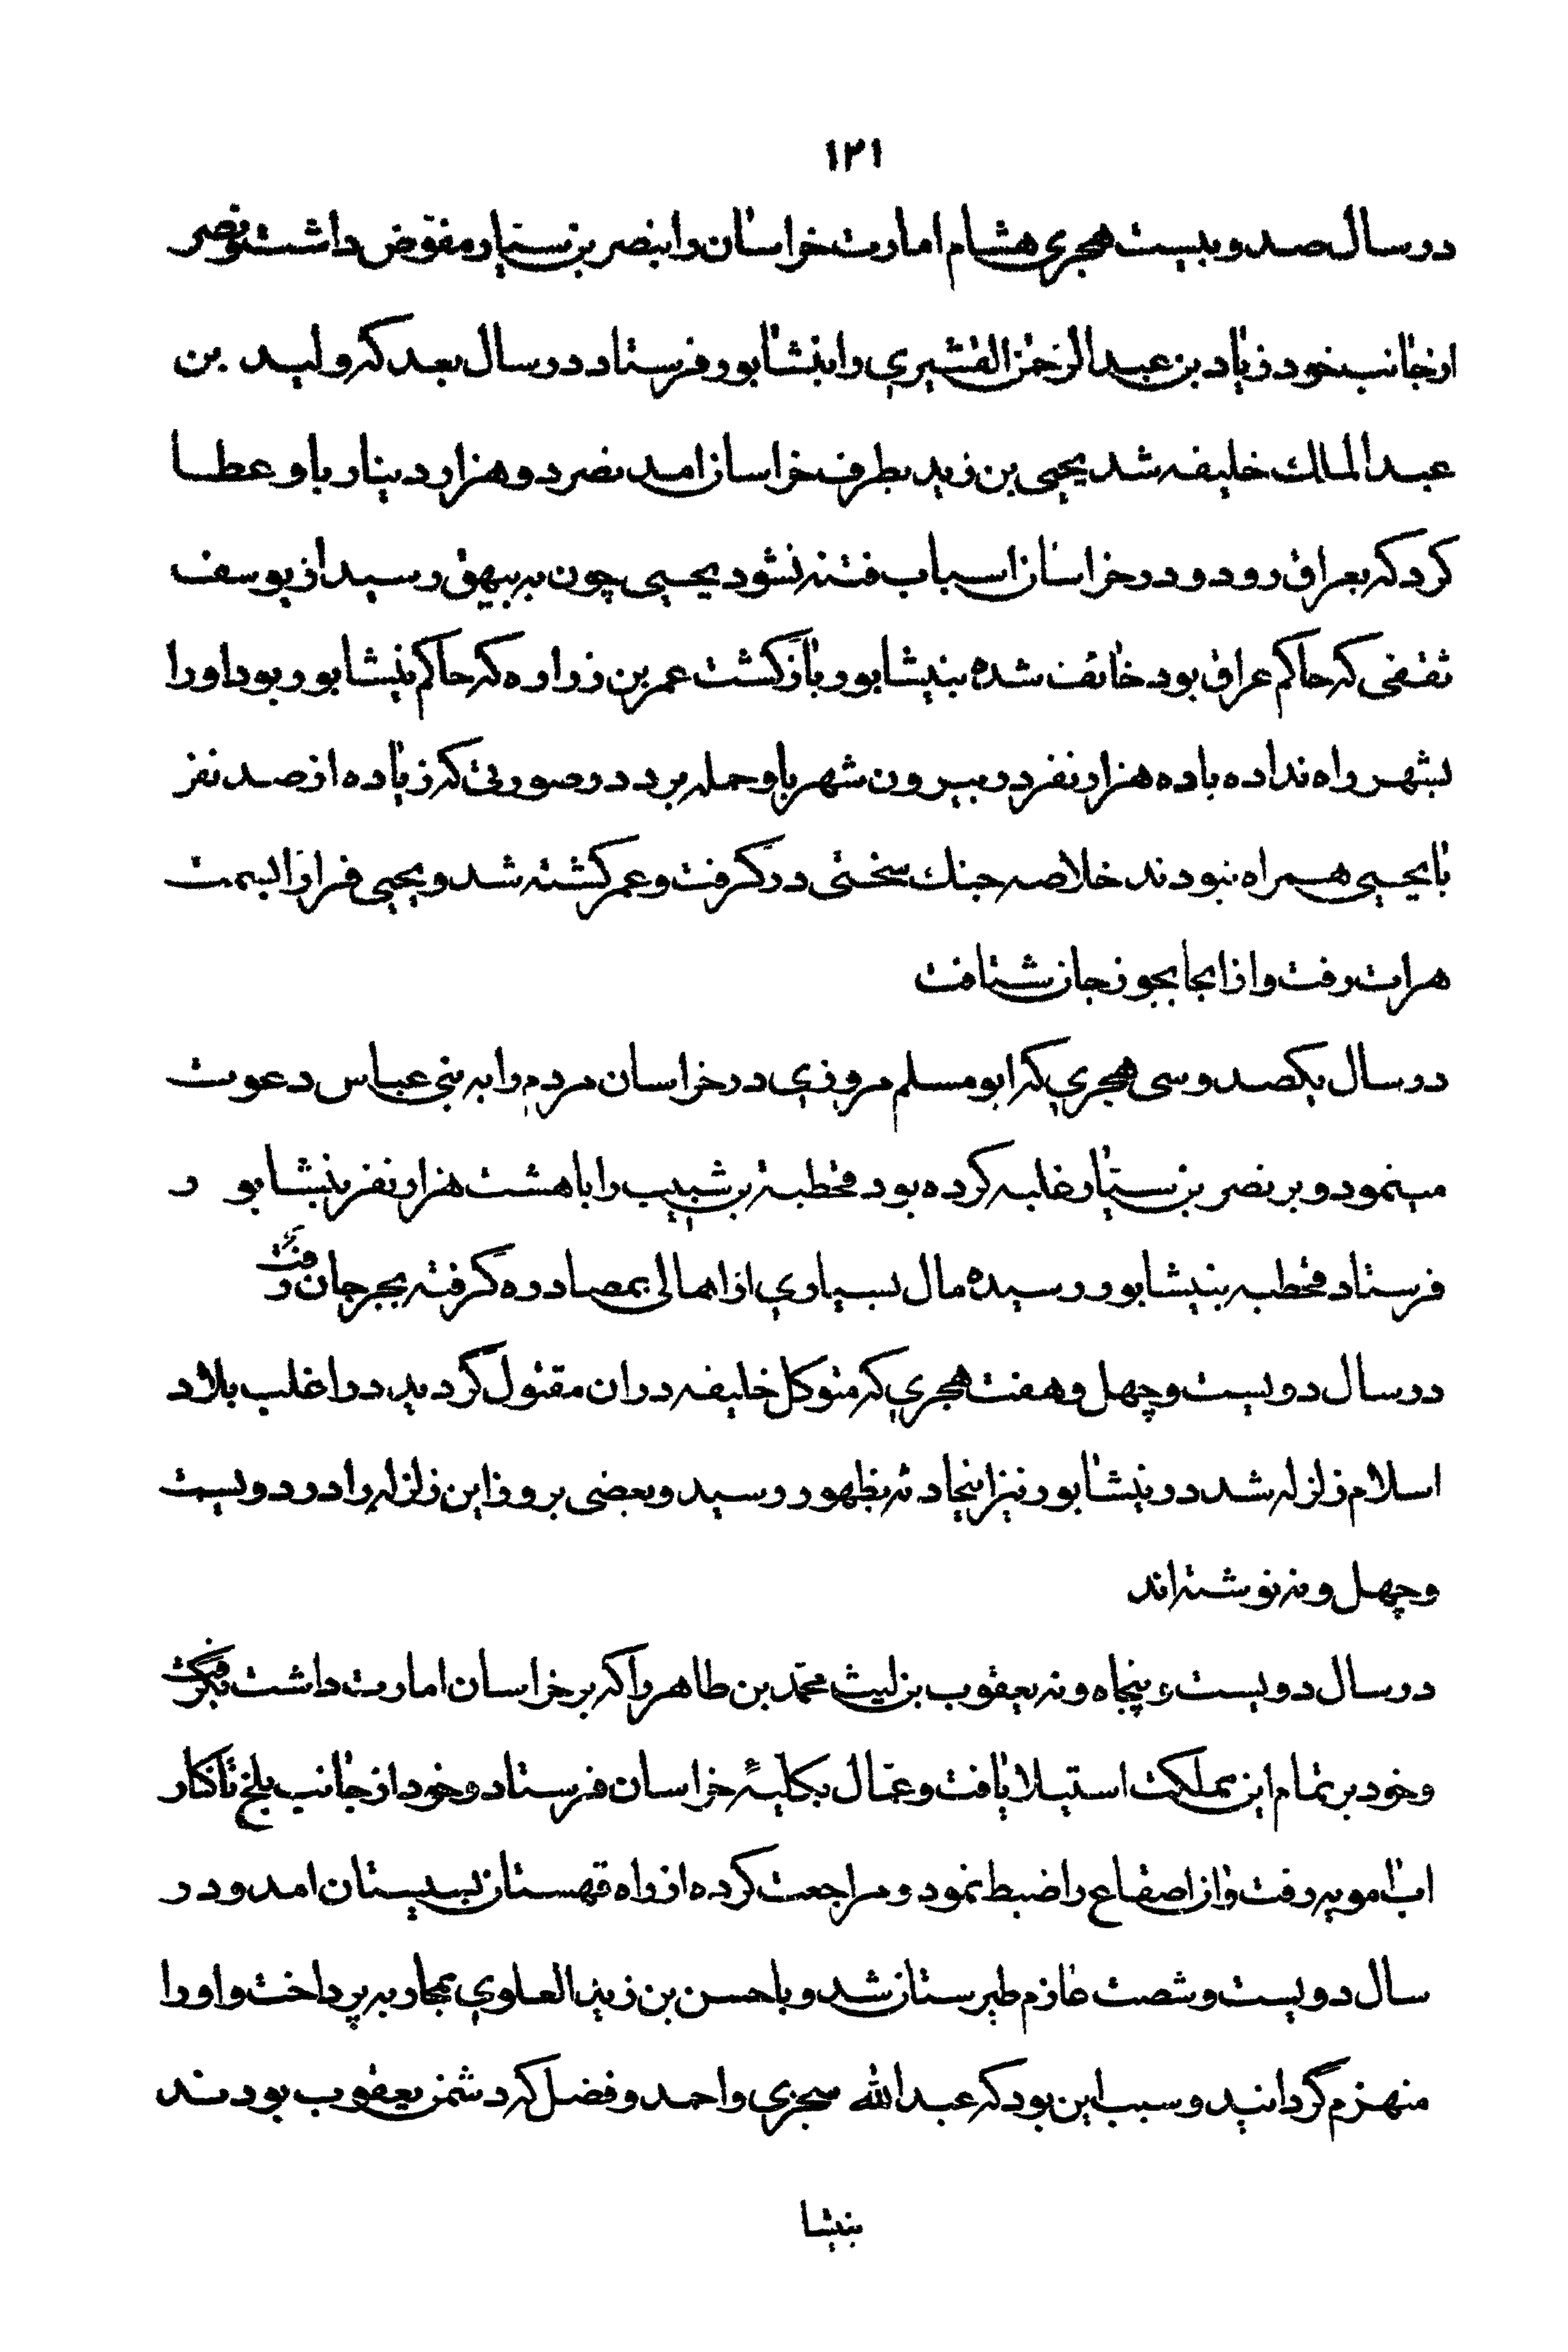 ۱۲۱
در سال صد و بیست هجری هشام امارت خراسان را بنصر بن سیّار مفوّض داشت و نصر
از جانب خود زیاد بن عبد الرحمن القشیری را بنیشابور فرستاد در سال بعد که ولید بن
عبد الملک خلیفه شد یحیی بن زید بطرف خراسان امد نصر دو هزار دینار باو عطا
کرد که بعراق رود و در خراسان اسباب فتنه نشود یحیی چون به بیهق رسید از یوسف
ثقفی که حاکم عراق بود خائف شده بنیشابور بازگشت عمر بن زراره که حاکم نیشابور بود او را
بشهر راه نداده با ده هزار نفر در بیرون شهر باو حمله برد در صورتی که زیاده از صد نفر
با یحیی همراه نبودند خلاصه جنک سختی در گرفت و عمر کشته شد و یحیی فرارا بسمت
هرات رفت و از انجا بجوزجان شتافت
در سال یکصد و سی هجری که ابو مسلم مروزی در خراسان مردم را به بنی عباس دعوت
مینمود و بر نصر بن سیّار غلبه کرده بود قحطبة بن شبیب را با هشت هزار نفر بنیشابو ر
فرستاد قحطبه بنیشابور رسیده مال بسیاری از اهالی بمصادره گرفته بجرجان رفت
در سال دویست و چهل و هفت هجری که متوکل خلیفه در ان مقتول گردید در اغلب بلاد
اسلام زلزله شد در نیشابور نیز اینحادثه بظهور رسید و بعضی بروز این زلزله را در دویست
و چهل و نه نوشته اند
در سال دویست و پنجاه و نه یعقوب بن لیث محمّد بن طاهر را که بر خراسان امارت داشت بگرفت
و خود بر تمام این مملکت استیلا یافت و عمّال بکلیۀ خراسان فرستاد و خود از جانب بلخ تا کنار
اب امویه رفت و ان اصقاع را ضبط نمود و مراجعت کرده از راه قهستان بسیستان امد و در
سال دویست و شصت عازم طبرستان شد و با حسن بن زید العلوی بمحاربه پرداخت و او را
منهزم گردانید و سبب این بود که عبد الله سجزی و احمد و فضل که دشمن یعقوب بودند
بنیشا